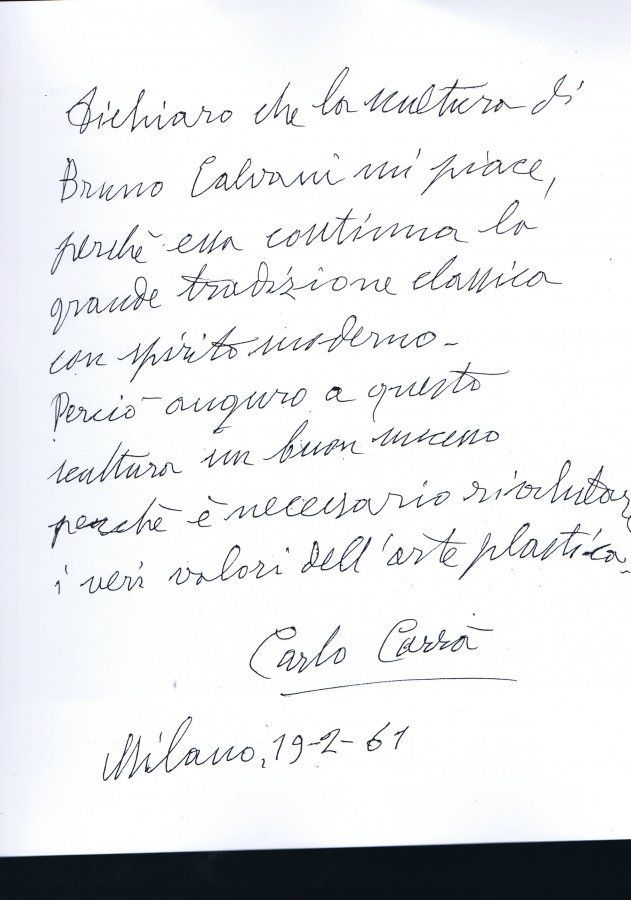 Dichiaro che la scultura di
Bruno Calvani mi piace,
perchè essa continua la
grande tradizione classica
con spirito moderno-
Perciò auguro a questa
scultura un buon successo
perchè è necessario rivalutare
i veri valori dell'arte plastica.
Carlo Carrà
Milano, 19-2-61